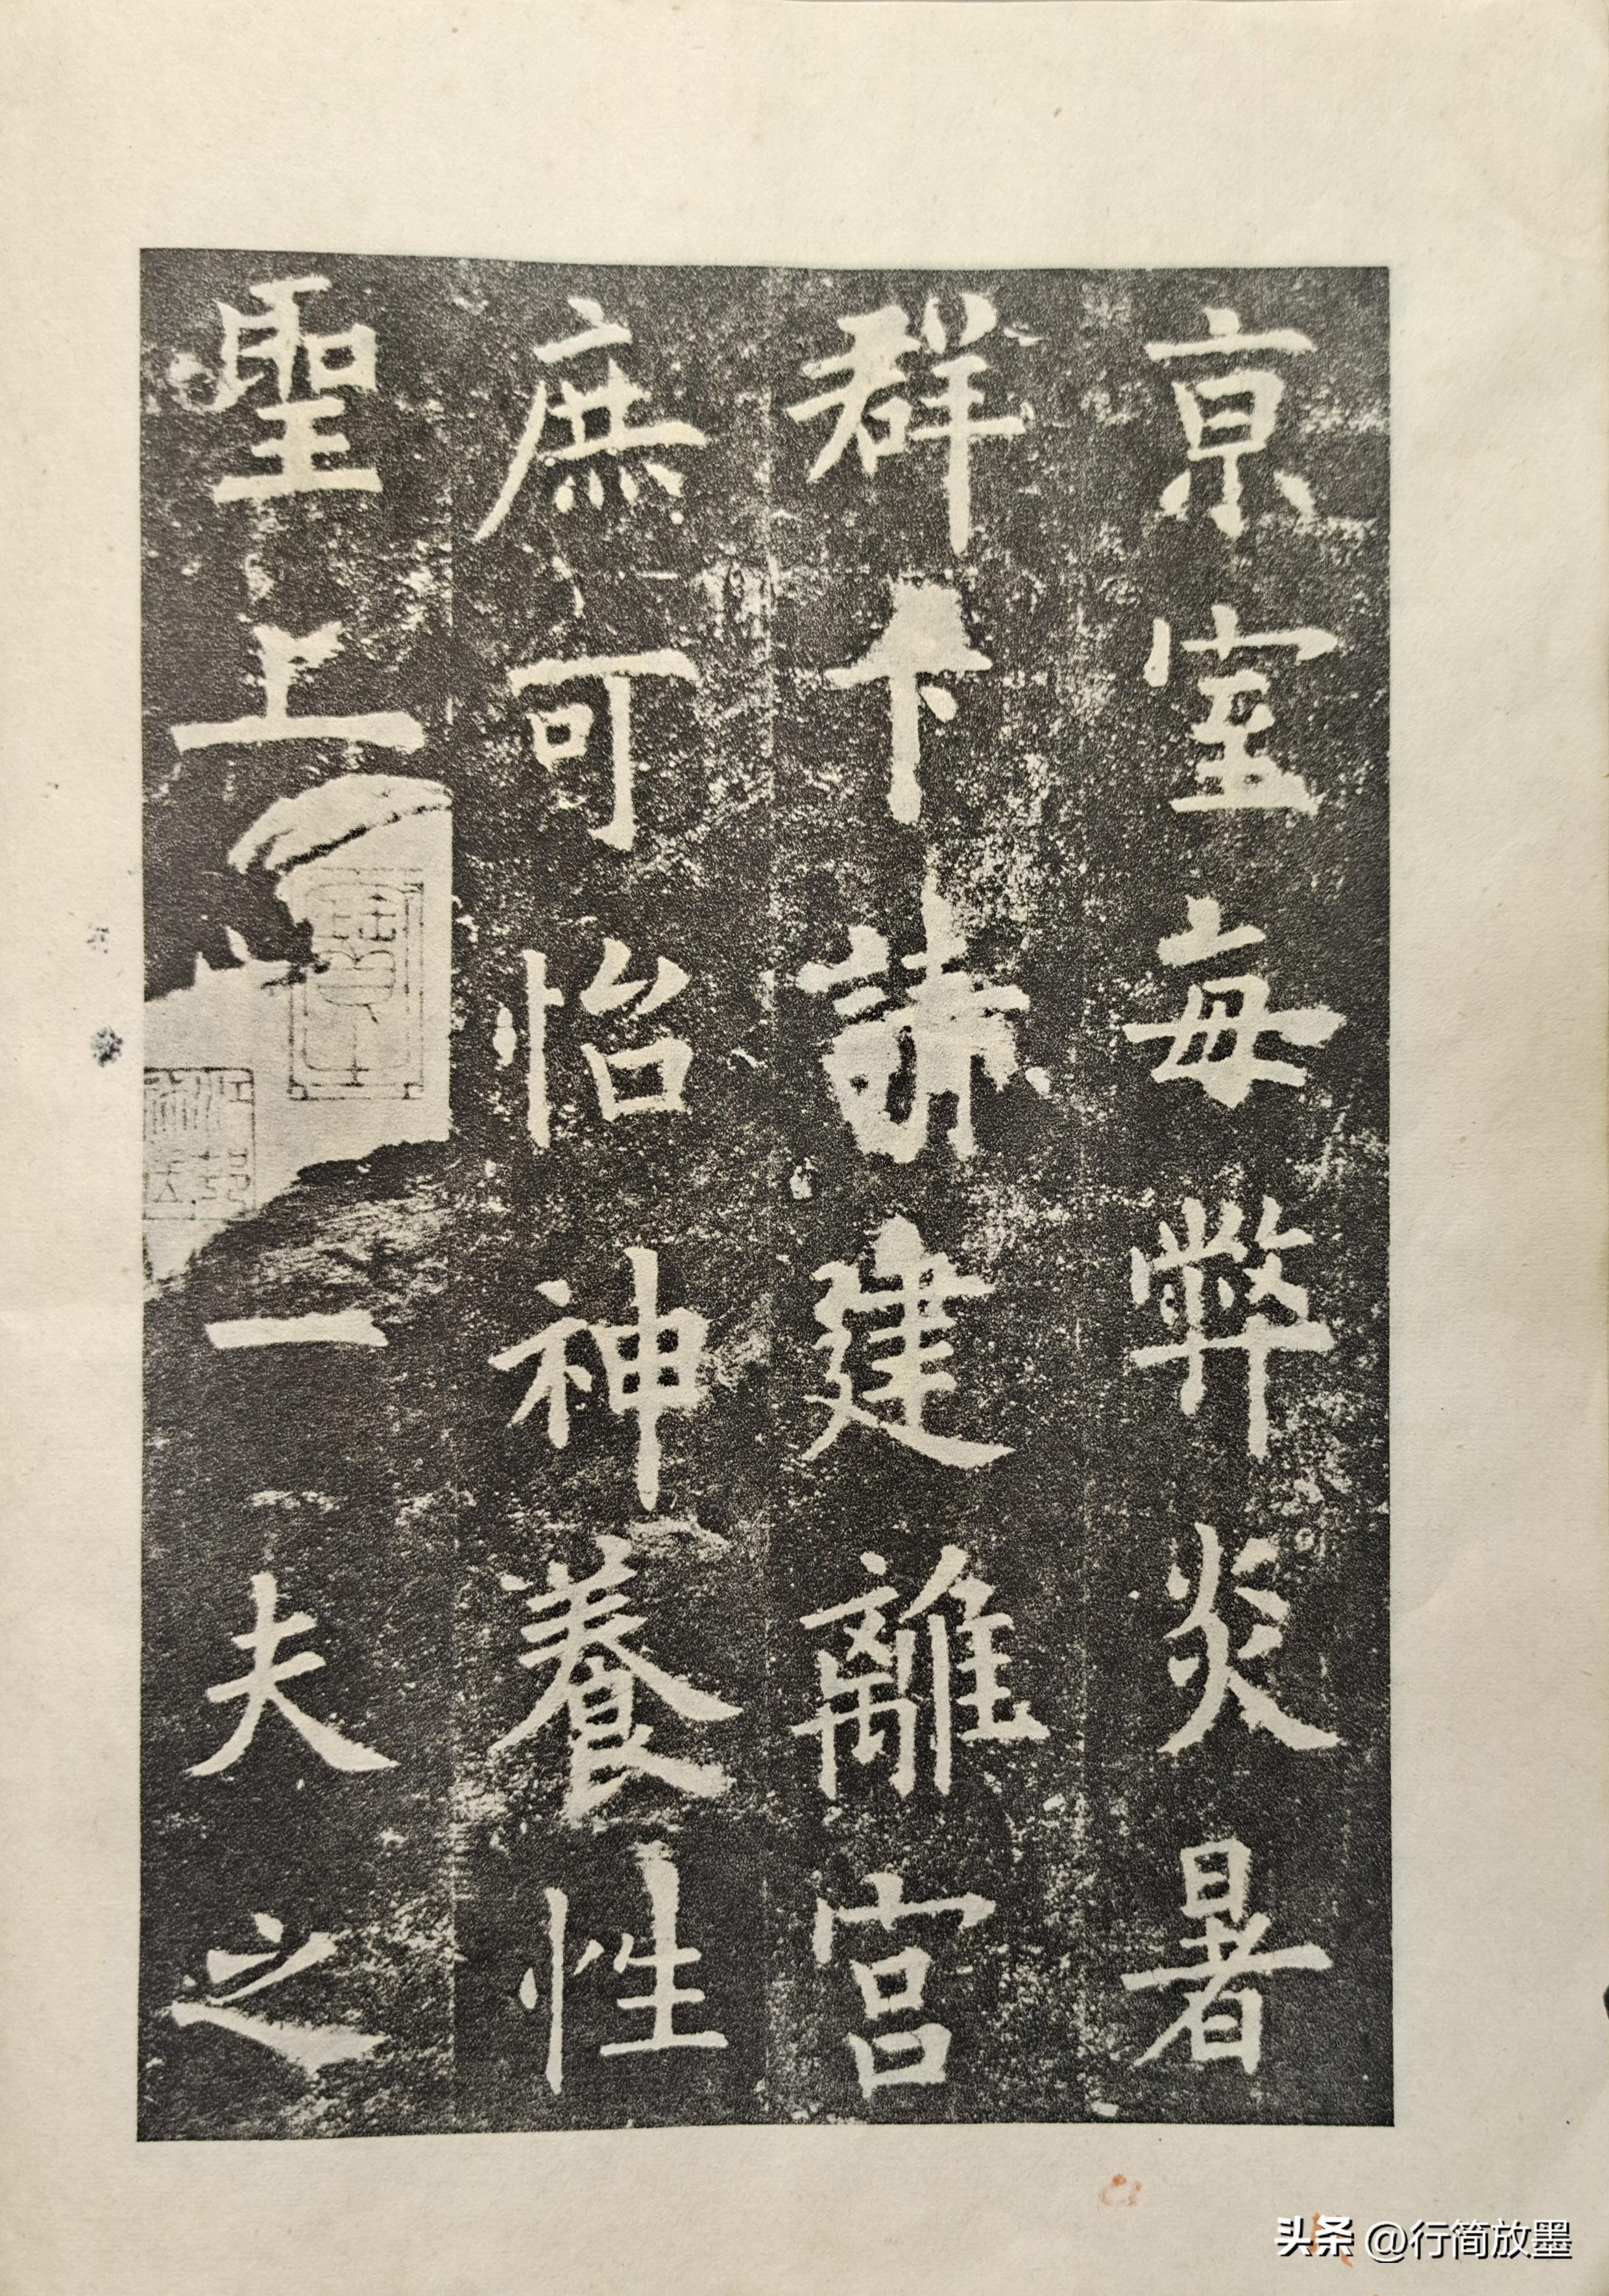 京室每弊炎暑
群下請建離宮
庶可怡神養性
聖上一夫之
头条 @行简放墨